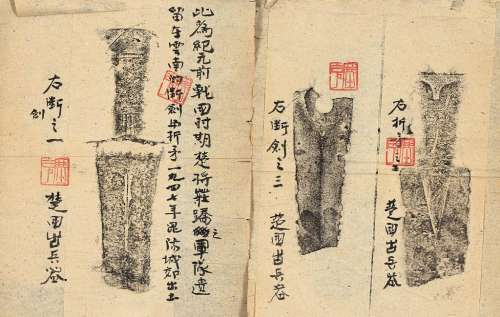 右折矛之二
楚国古兵器
右断劍之三
楚国古兵器
此為紀元前戰国时期楚将莊蹻之軍隊遺
留在雲南的断劍与折矛一九四七年昆陽城郊出土
右断劍之一
楚国古兵器